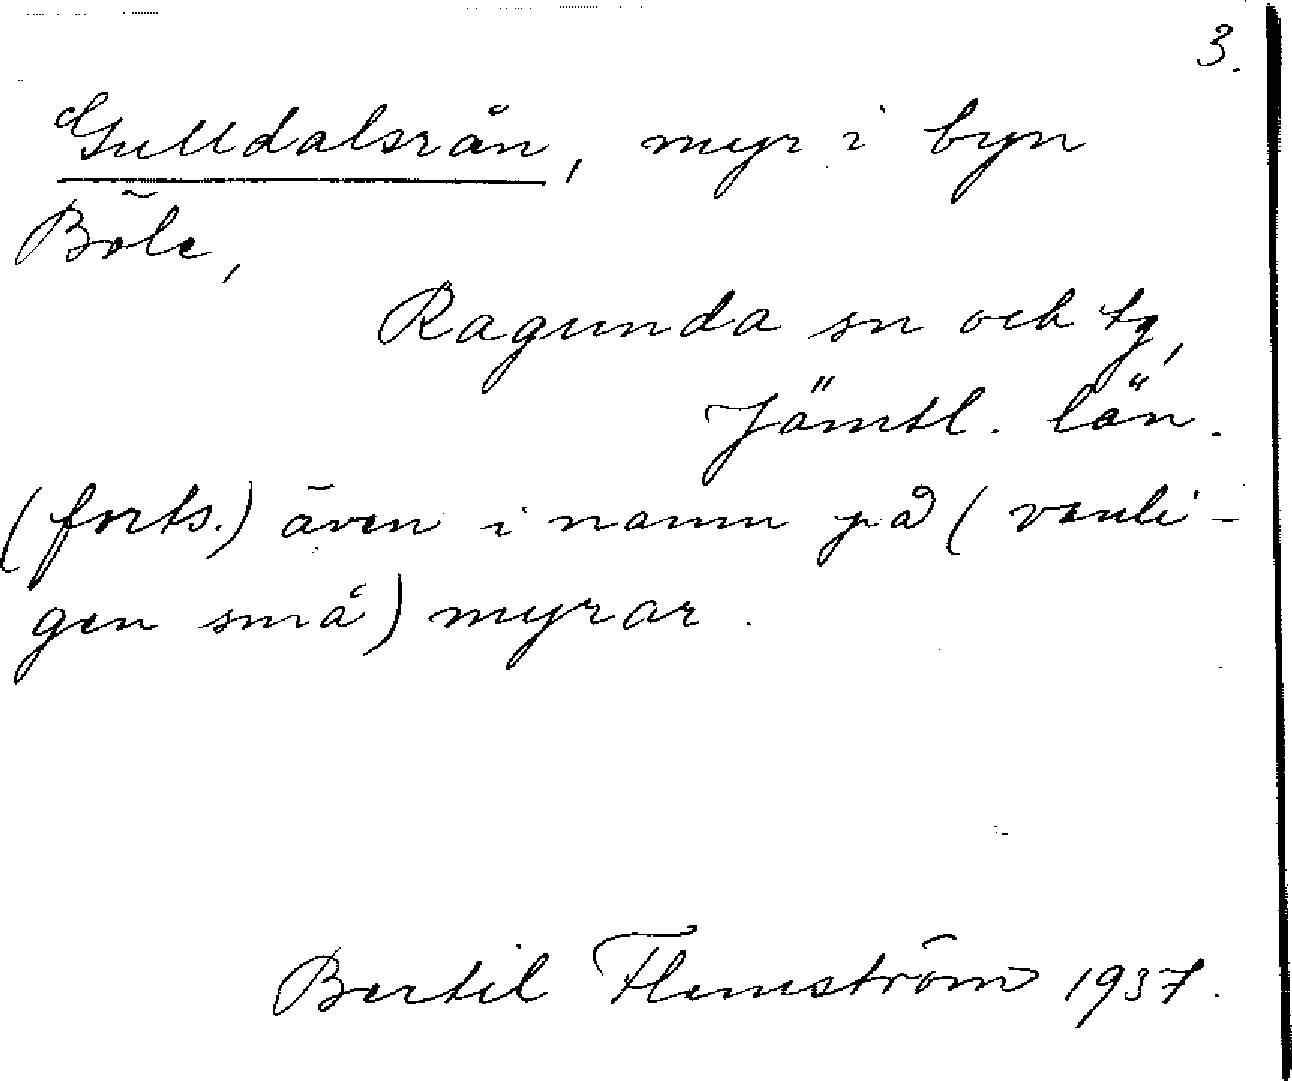 3.
Gulldalsrån, myr i byn
Böle,
Ragunda sn och tg,
Jämtl. län.
(forts.) även i namn på (vanli-
gen små) myrar.
Bertil Flemström 1937.